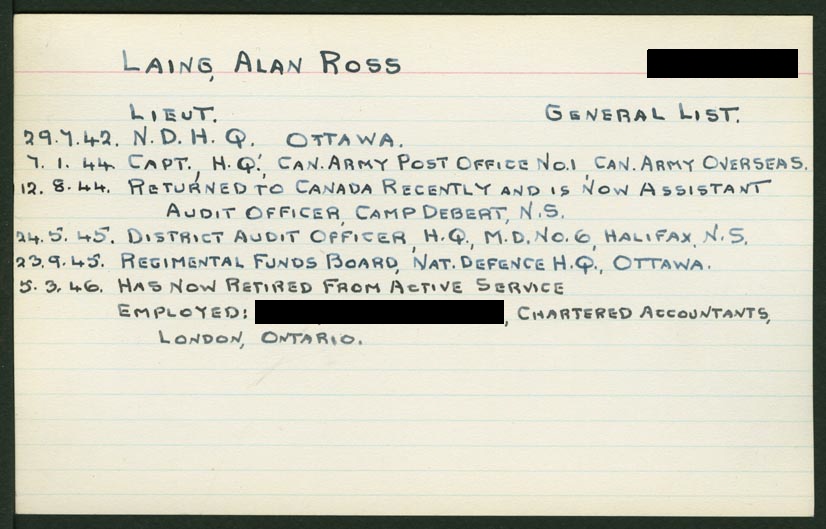 LAING, ALAN ROSS
LIEUT. GENERAL LIST.
29.7.42. N.D.H.Q. OTTAWA.
7.1.44. CAPT., H.Q., CAN. ARMY POST OFFICE NO.1, CAN. ARMY OVERSEAS.
12.8.44. RETURNED TO CANADA RECENTLY AND IS NOW ASSISTANT
AUDIT OFFICER, CAMP DEBERT, N.S.
24.5.45. DISTRICT AUDIT OFFICER, H.Q., M.D. NO.6, HALIFAX, N.S.
23.9.45. REGIMENTAL FUNDS BOARD, NAT. DEFENCE H.Q., OTTAWA.
5.3.46. HAS NOW RETIRED FROM ACTIVE SERVICE
EMPLOYED: , CHARTERED ACCOUNTANTS,
LONDON, ONTARIO.